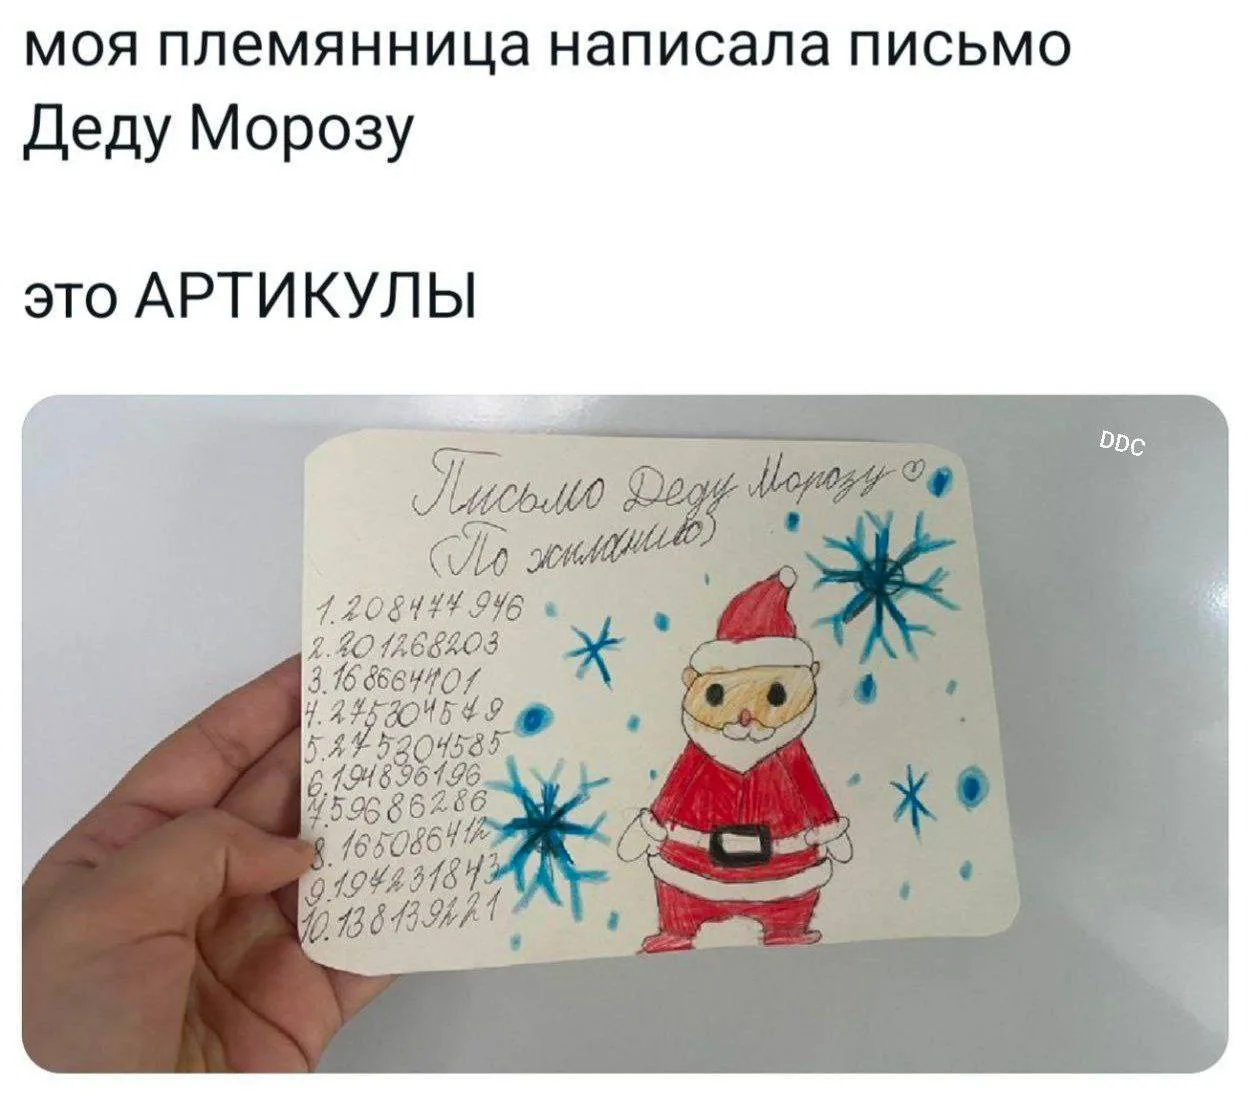 моя племянница написала письмо
Деду Морозу
это АРТИКУЛЫ
DDC
Письмо Деду Морозу ♡
(По желанию)
1.208477946
2.201268203
3.168664701
4.275304579
5.275304585
6.194896196
7.59686286
8.165086472
9.197231843
10.138139221